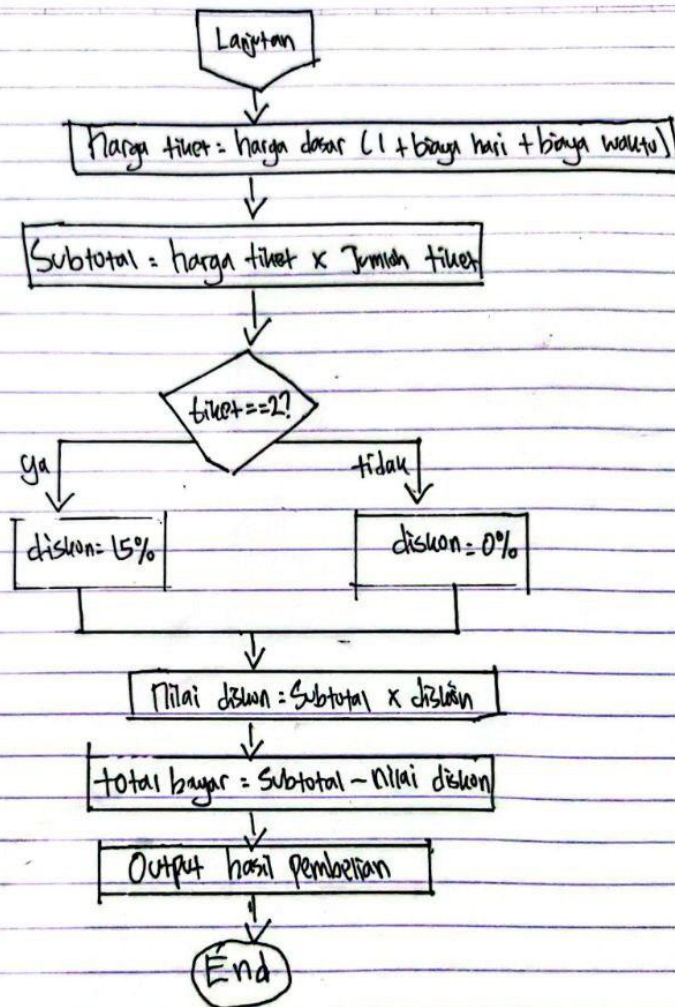 Lanjutan
harga tiket = harga dasar (1 + biaya hari + biaya waktu)
Subtotal = harga tiket x Jumlah tiket
tiket==2?
ya
tidak
diskon = 15%
diskon = 0%
Nilai diskon = Subtotal x diskon
total bayar = Subtotal - nilai diskon
Output hasil pembelian
End